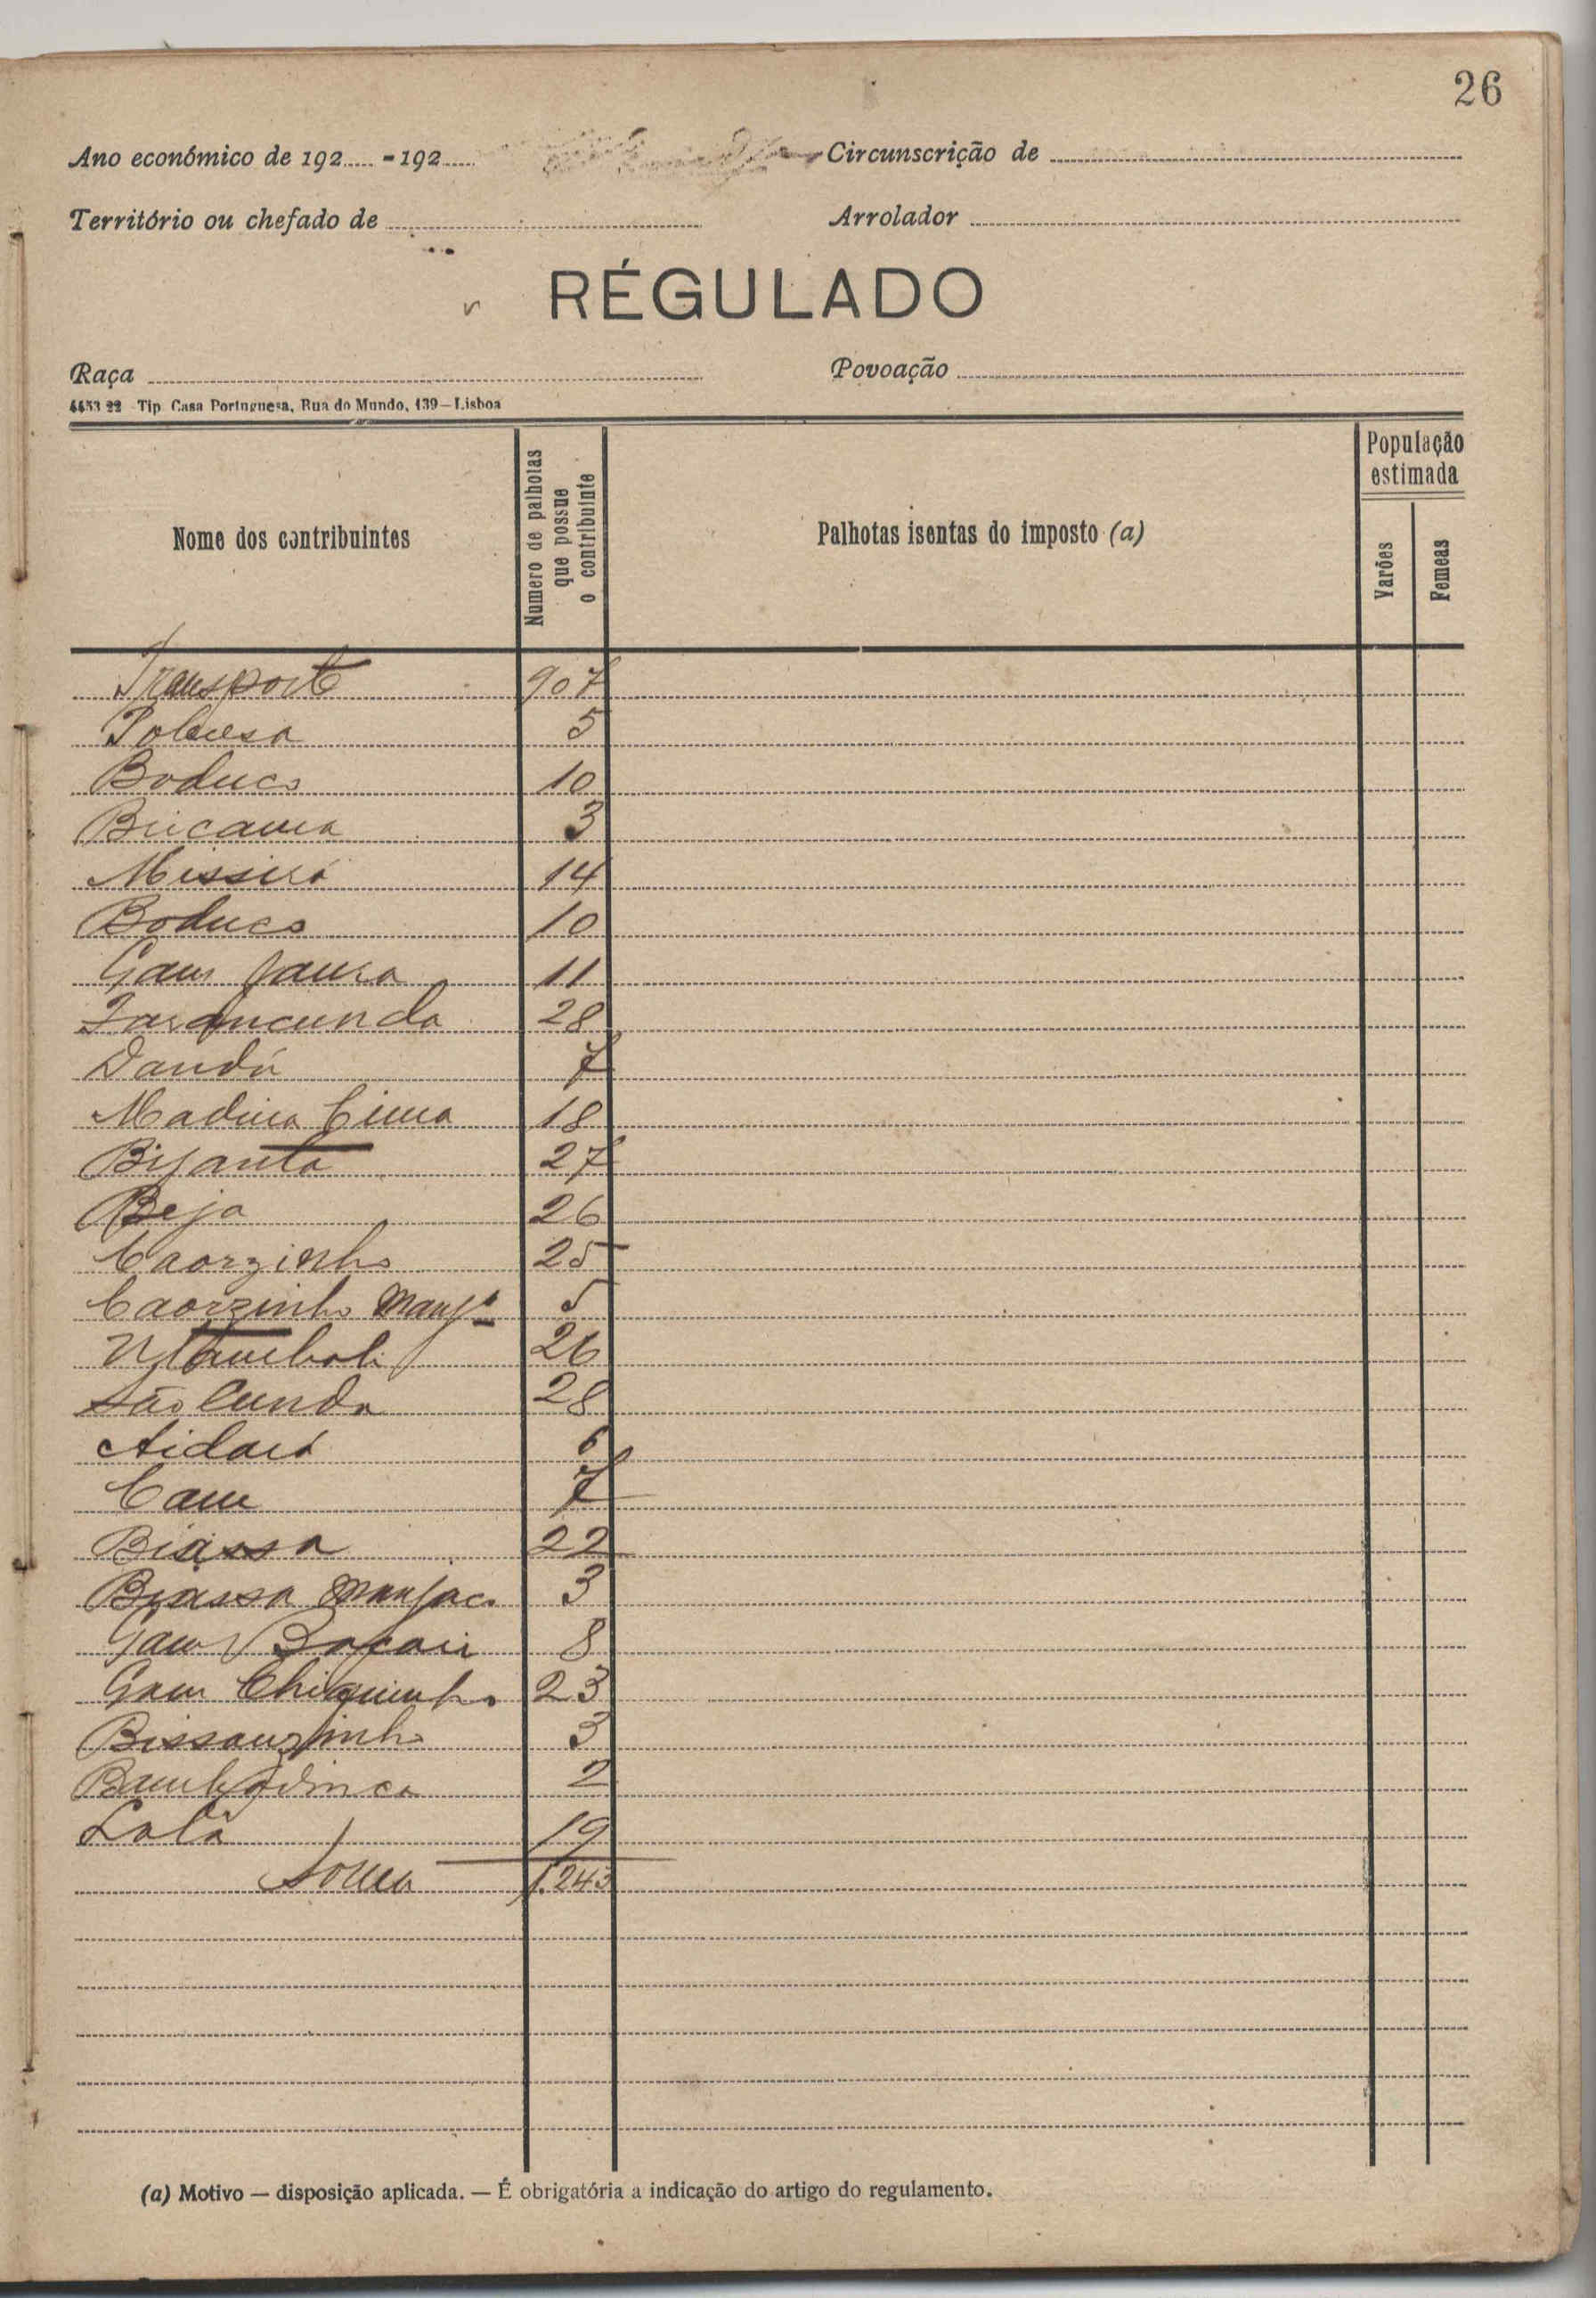 26
Ano económico de 192..... - 192..... Circunscrição de
Território ou chefado de Arrolador
RÉGULADO
Raça Povoação
4453 22 Tip. Casa Portuguesa, Rua do Mundo, 139 — Lisboa
Nome dos contribuintes
Numero de palhotas que possue o contribuinte
Palhotas isentas do imposto (a)
População estimada
Varões
Femeas
Transporte 907
5
Boduco 10
3
Missirá 14
Boduco 10
Gam 11
28
Dandú 7
Madina Cima 18
Bijanta 27
Beja 26
Caorzinho 25
Caorzinho Manjº 5
26
São Cunda 28
Aidará 6
Cam 7
Biassa 22
Biassa Manjaco 3
Gam 8
Gam Chiquinho 23
Bissauzinho 3
Bambadinca 2
Lalá 19
Soma 1.243
(a) Motivo — disposição aplicada. — É obrigatória a indicação do artigo do regulamento.